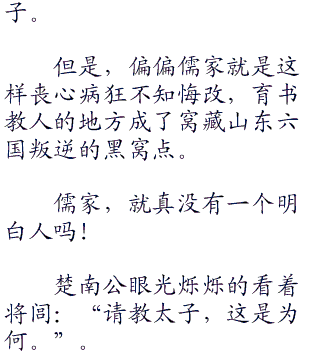 子。
但是，偏偏儒家就是这
样丧心病狂不知悔改，育书
教人的地方成了窝藏山东六
国叛逆的黑窝点。
儒家，就真没有一个明
白人吗！
楚南公眼光烁烁的看着
将闾：“请教太子，这是为
何。”。